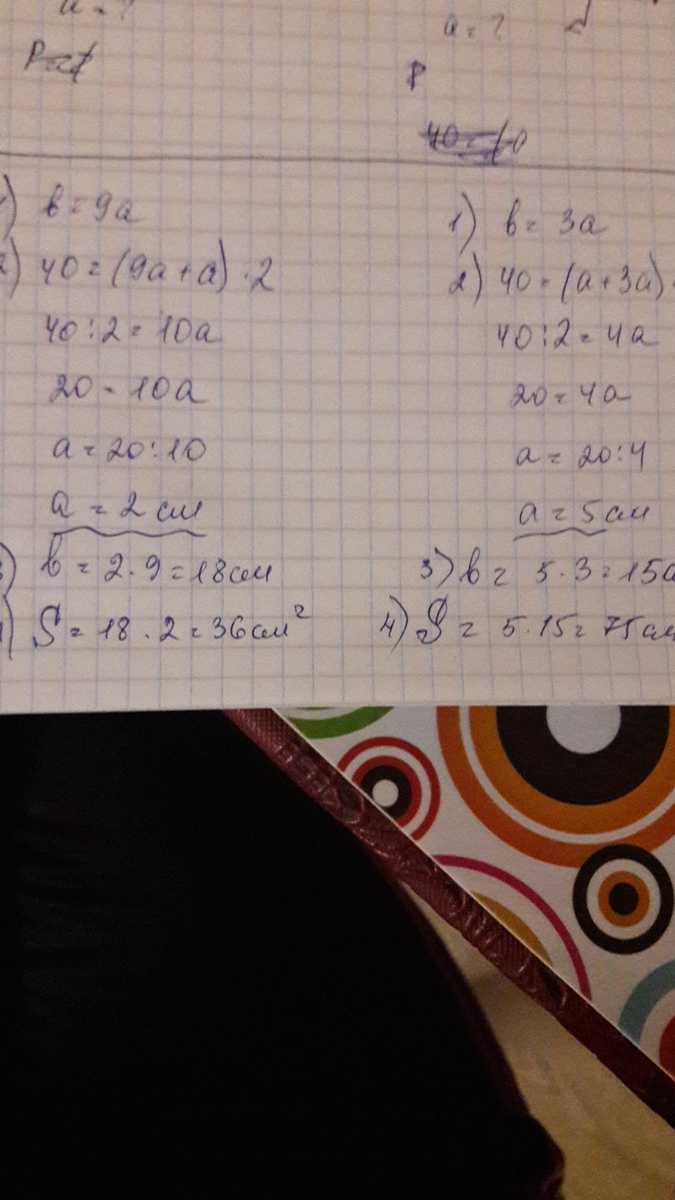 a = ?
P
1) в = 9a
2) 40 = (9a + a) · 2
40 : 2 = 10a
20 = 10a
a = 20 : 10
a = 2 см
3) в = 2 · 9 = 18 см
4) S = 18 · 2 = 36 см²
1) в = 3a
2) 40 = (a + 3a) ·
40 : 2 = 4a
20 = 4a
a = 20 : 4
a = 5 см
3) в = 5 · 3 = 15 с
4) S = 5 · 15 = 75 см